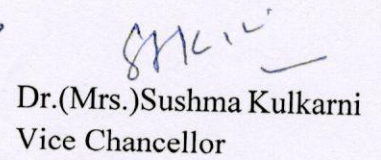 Dr.(Mrs.)Sushma Kulkarni
Vice Chancellor